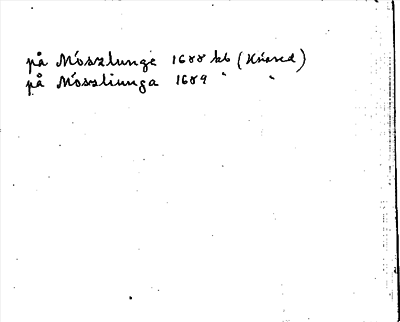 på Mószlunge 1688 kb (Knäred)
på Mószliunga 1689 " "